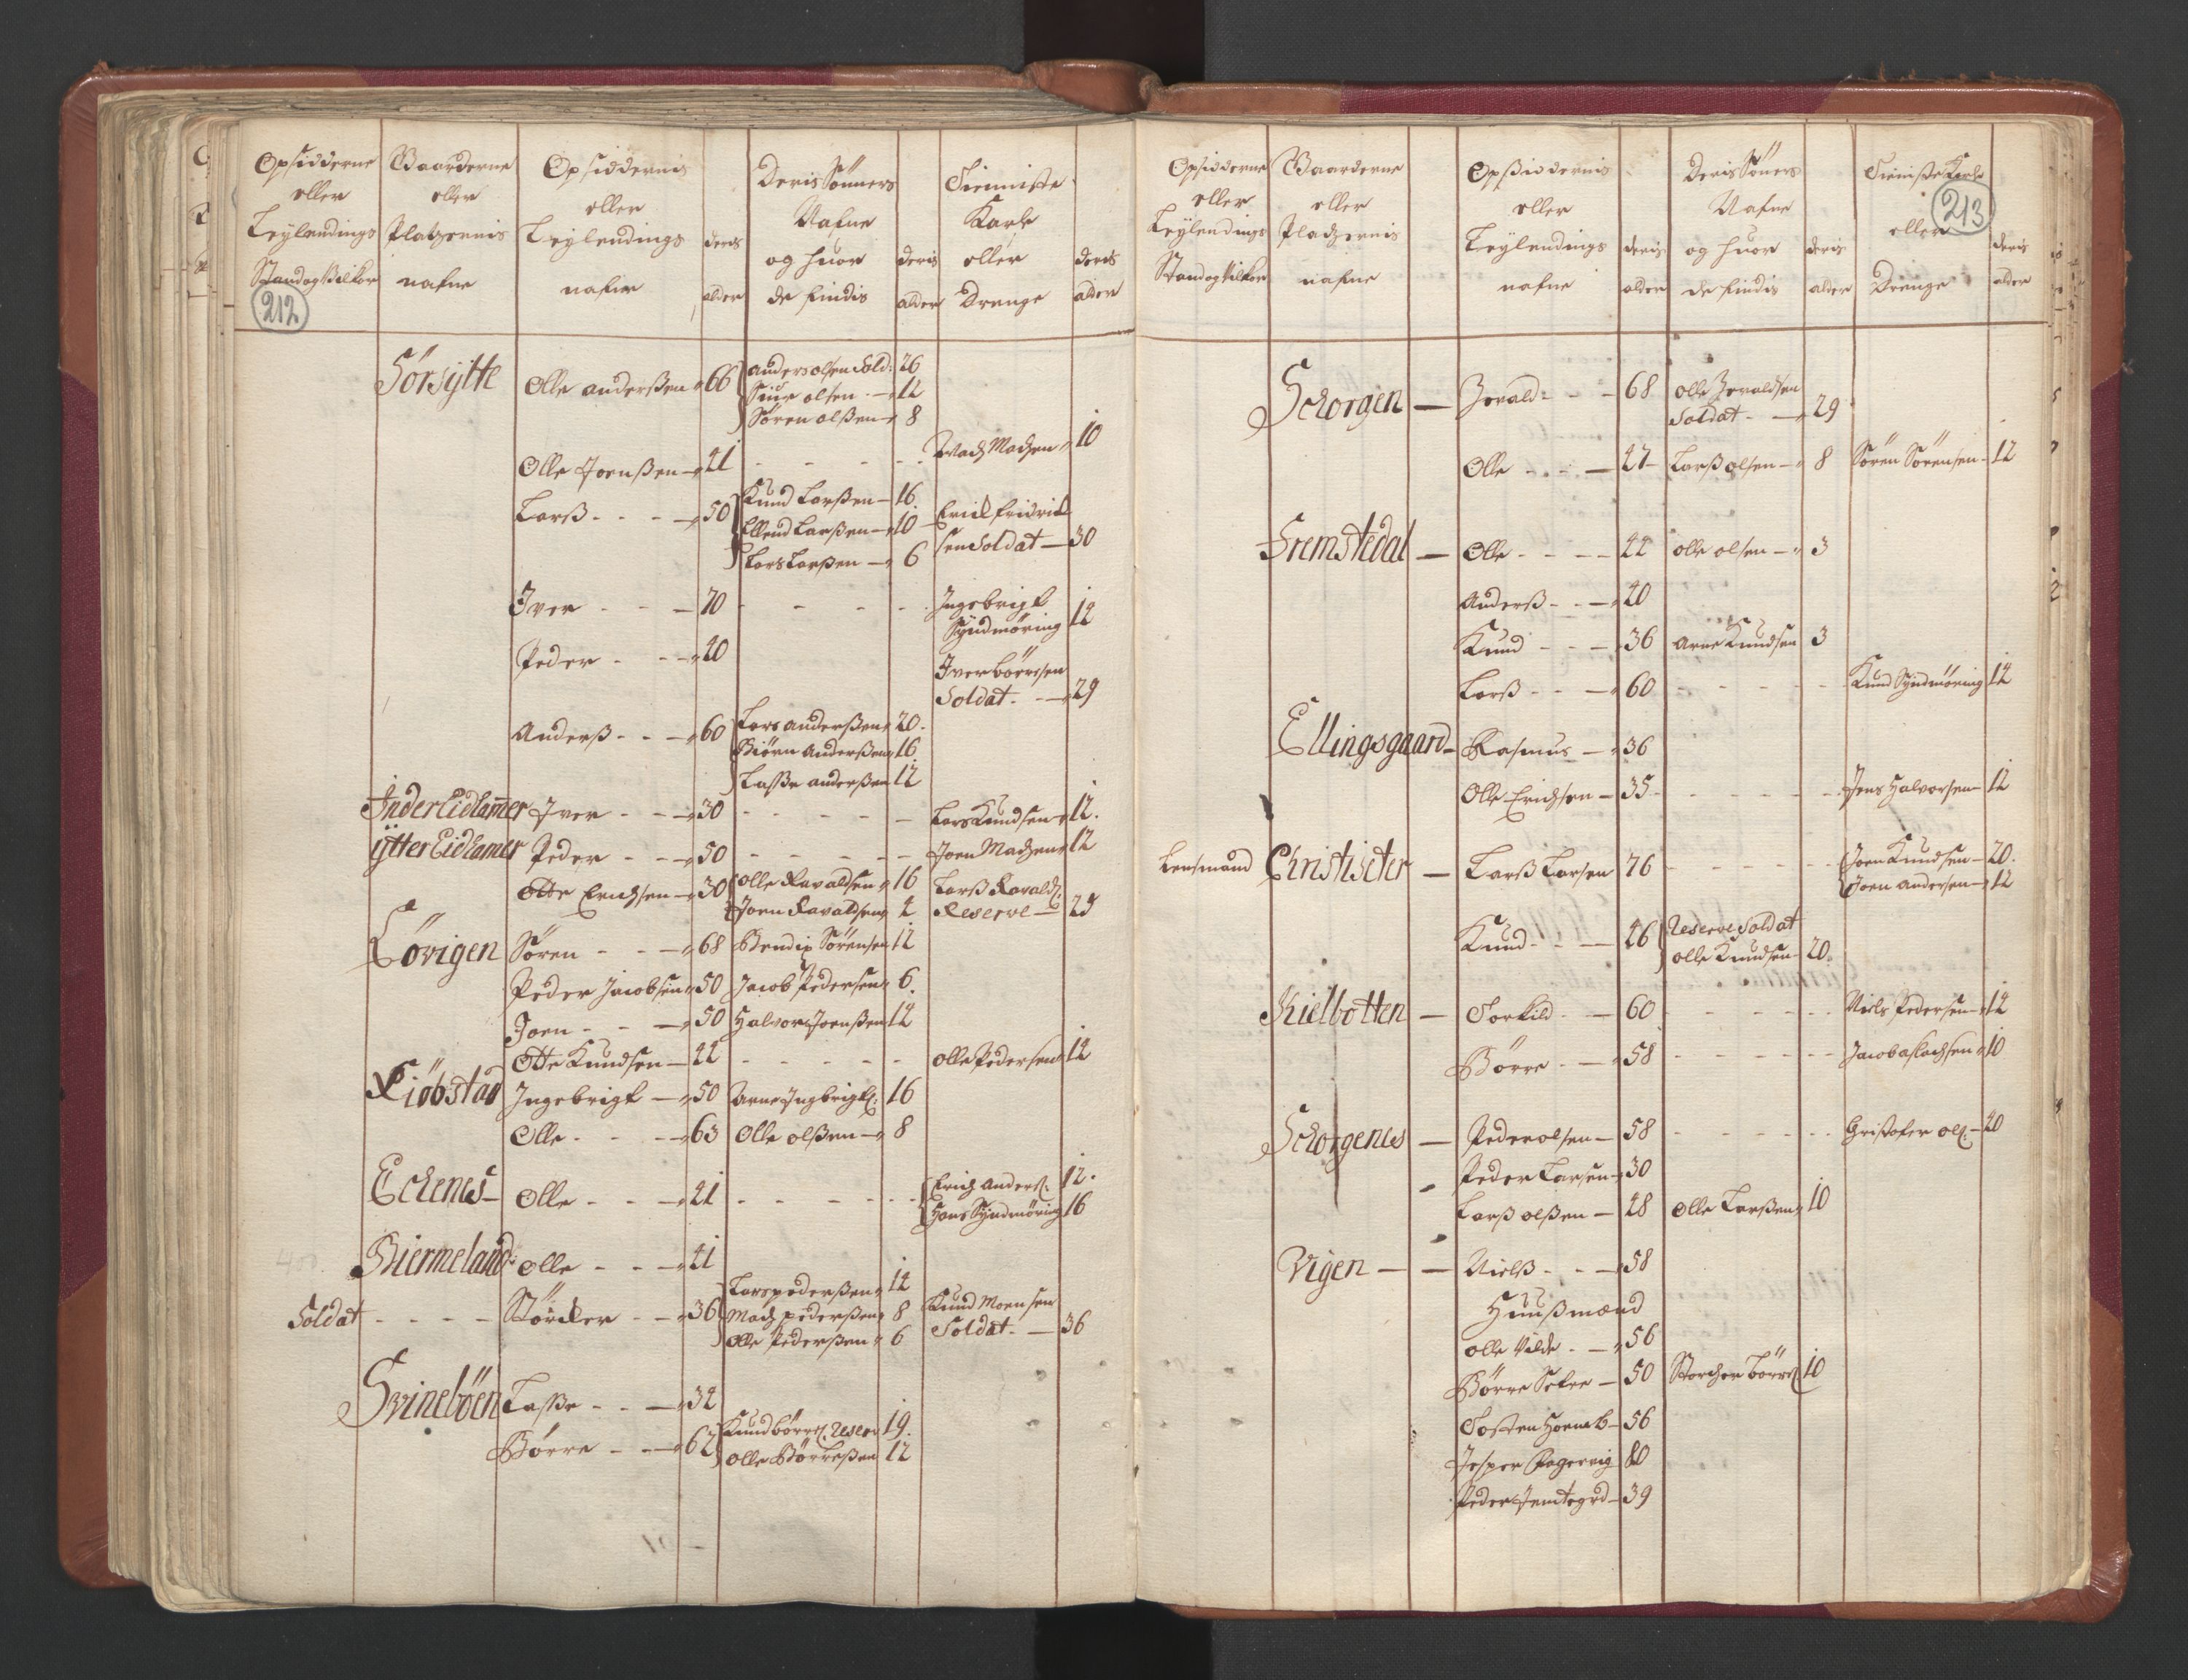 Opsidderne
eller
Leÿlendings
Stand og Vilkor
212
Gaarderne
eller
Platzernis
nafne
Opsiddernis
eller
Leÿlendings
nafne
deris
alder
Deris Sönners
Nafne
og huor
de findis
deris
alder
Tienniste
Karle
eller
Drenge
deris
alder
Sörsÿtte Olle anderßen 66 Anders olsen Sold: 26
Siur olsen 12
Sören olßen 8
Olle Joenßen 41 Madz Madzen 10
Larß 50 Knud Larßen 16
Ellend Larßen 10 Erick fridrick
Lars Larßen 6 sen Soldat 30
Iver 70 Ingebrigt
Sÿndmöring 12
Peder 40 Iver börresen
Soldat 29
Anderß 60 Lars anderßen 20
Biörn Anderßen 16
Laße anderßen 12
Inder Eidkammer Iver 30 Lars Knudsen 12
ÿtter Eidkamer Peder 50 Joen Madzen 12
Otte Erichsen 30 Olle Ravaldsen 16 Larß Ravaldß:
Joen Ravaldsen 4 Reserve 25
Lövigen Sören 68 Bendix Sörensen 12
Peder Jacobsen 50 Jacob Pedersen 6
Joen 50 Halvor Joenßen 14
Otte Knudsen 44 Olle Pedersen 14
Kiöbstad Ingebrigt 50 Arne Ingbrigtß: 16
Olle 63 Olle olßen 8
Eckenes Olle 41 Erich Anderß: 12
Hans Sÿndmöring 16
Biermeland Olle 41
Lars pederßen 14
Soldat Störcker 36 Madz pederßen 8 Knud Moensen
Olle Pederßen 6 Soldat 36
Svineböen Laße 34
Börre 62 Knud börreß: Reserv 19
Olle Börreßen 12
Opsidderne
eller
Leÿlendings
Stand og Vilkor
Gaarderne
eller
Pladzernis
nafne
Opßiddernis
eller
Leÿlendings
nafne
deris
alder
Deris Söners
Nafne
og huor
de findis
deris
alder
Tieniste Karle
213
eller
Drenge
deris
alder
Schorgen Jovald 68 Olle Jovaldsen
Soldat 29
Olle 47 Larß olsen 8 Sören Sörensen 12
Fremstedal Olle 44 olle olsen 3
Anderß 40
Knud 36 Arne Knudsen 3
Larß 60 Knud Sÿndmöring 14
Ellingsgaard Rasmus 36
Olle Erichsen 35 Jens Halvorsen 12
Lensmand Christiseter Larß Larsen 76 Joen Knudsen 20
Joen andersen 12
Knud 46 Reserve Soldat
olle Knudsen 20
Kielbotten Torkild 60 Niels Pedersen 14
Börre 58 Jacob aslachsen 10
Schorgenes Peder olsen 58 Gristofer olß: 40
Peder Larsen 30
Larß olßen 48 Olle Larßen 10
Vigen Nielß 58
Huußmænd
olle Vilde 56
Börre 50 Storcher börreß 10
Tosten 56
Jesper Fagervig 80
Peder Jemtegrd 39